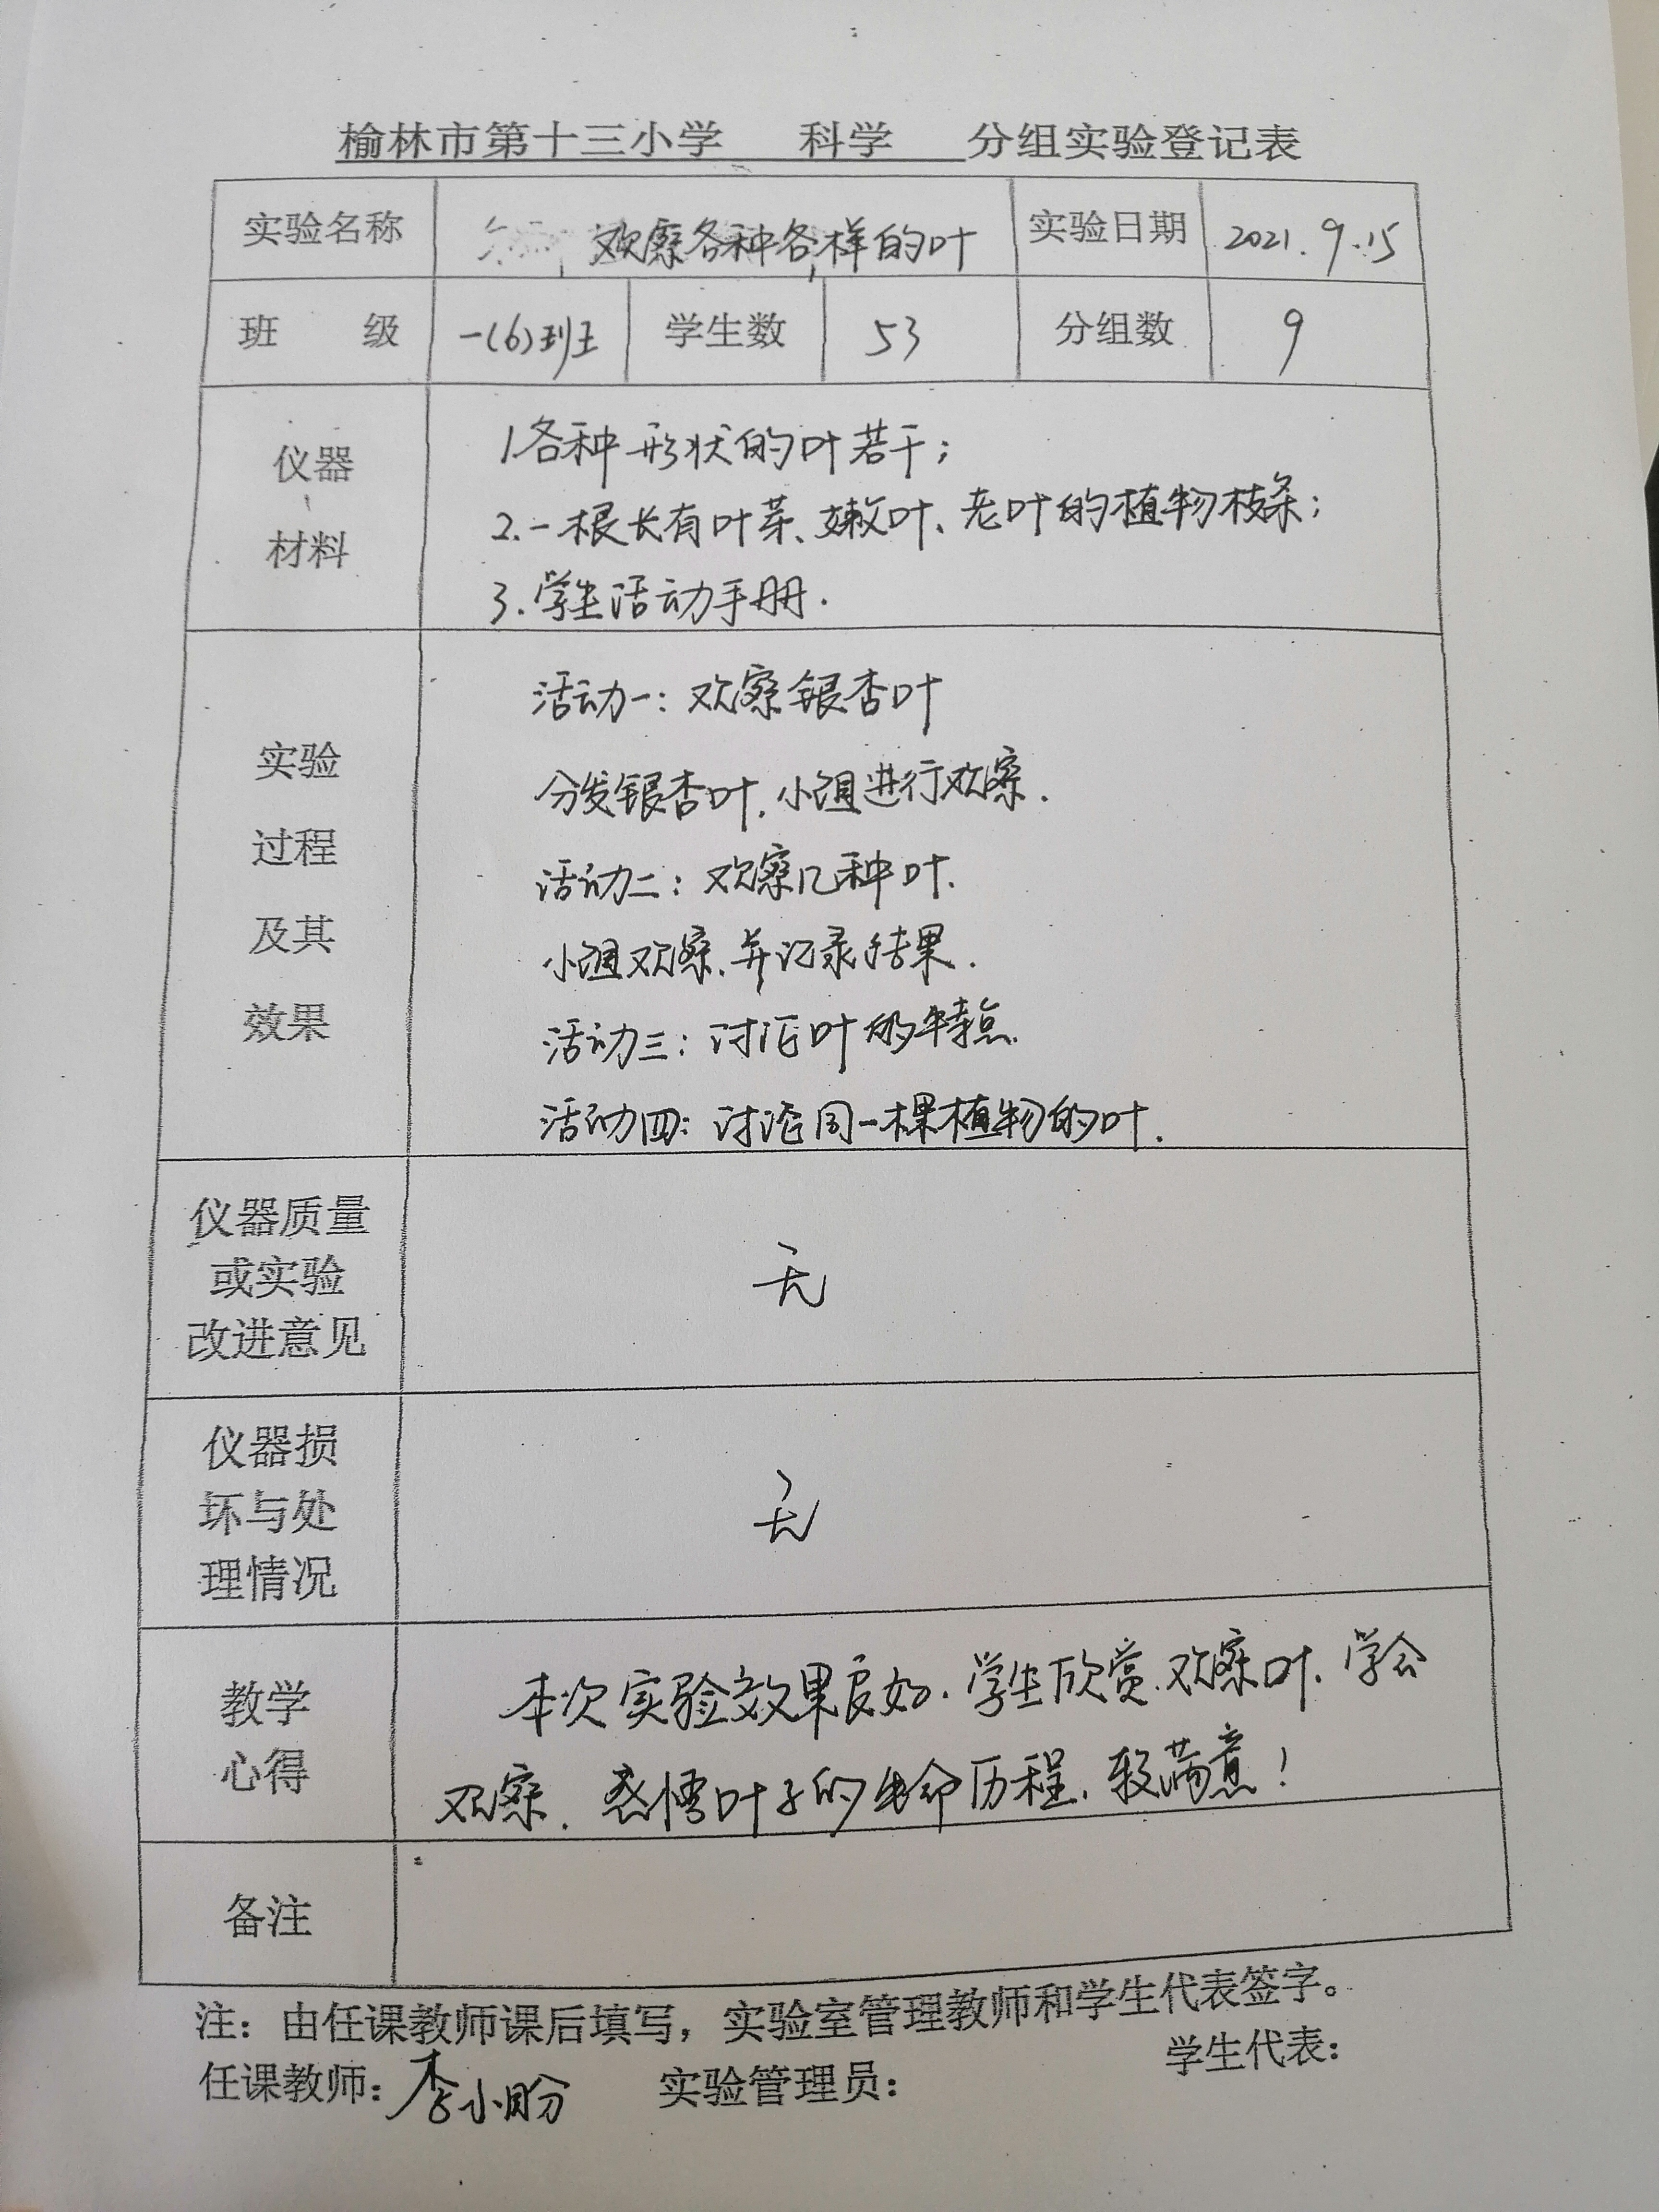 榆林市第十三小学 科学 分组实验登记表
实验名称 观察各种各样的叶 实验日期 2021.9.15
班 级 一(6)班 学生数 53 分组数 9
仪器
材料
1.各种形状的叶若干;
2.一根长有叶芽、嫩叶、老叶的植物枝条;
3.学生活动手册.
实验
过程
及其
效果
活动一:观察银杏叶
分发银杏叶,小组进行观察.
活动二:观察几种叶.
小组观察,并记录结果.
活动三:讨论叶的特点.
活动四:讨论同一棵植物的叶.
仪器质量
或实验
改进意见
无
仪器损
坏与处
理情况
无
教学
心得
本次实验效果良好.学生欣赏、观察叶、学会
观察、感悟叶子的生命历程,较满意!
备注
注:由任课教师课后填写,实验室管理教师和学生代表签字。
任课教师:李小盼 实验管理员: 学生代表: